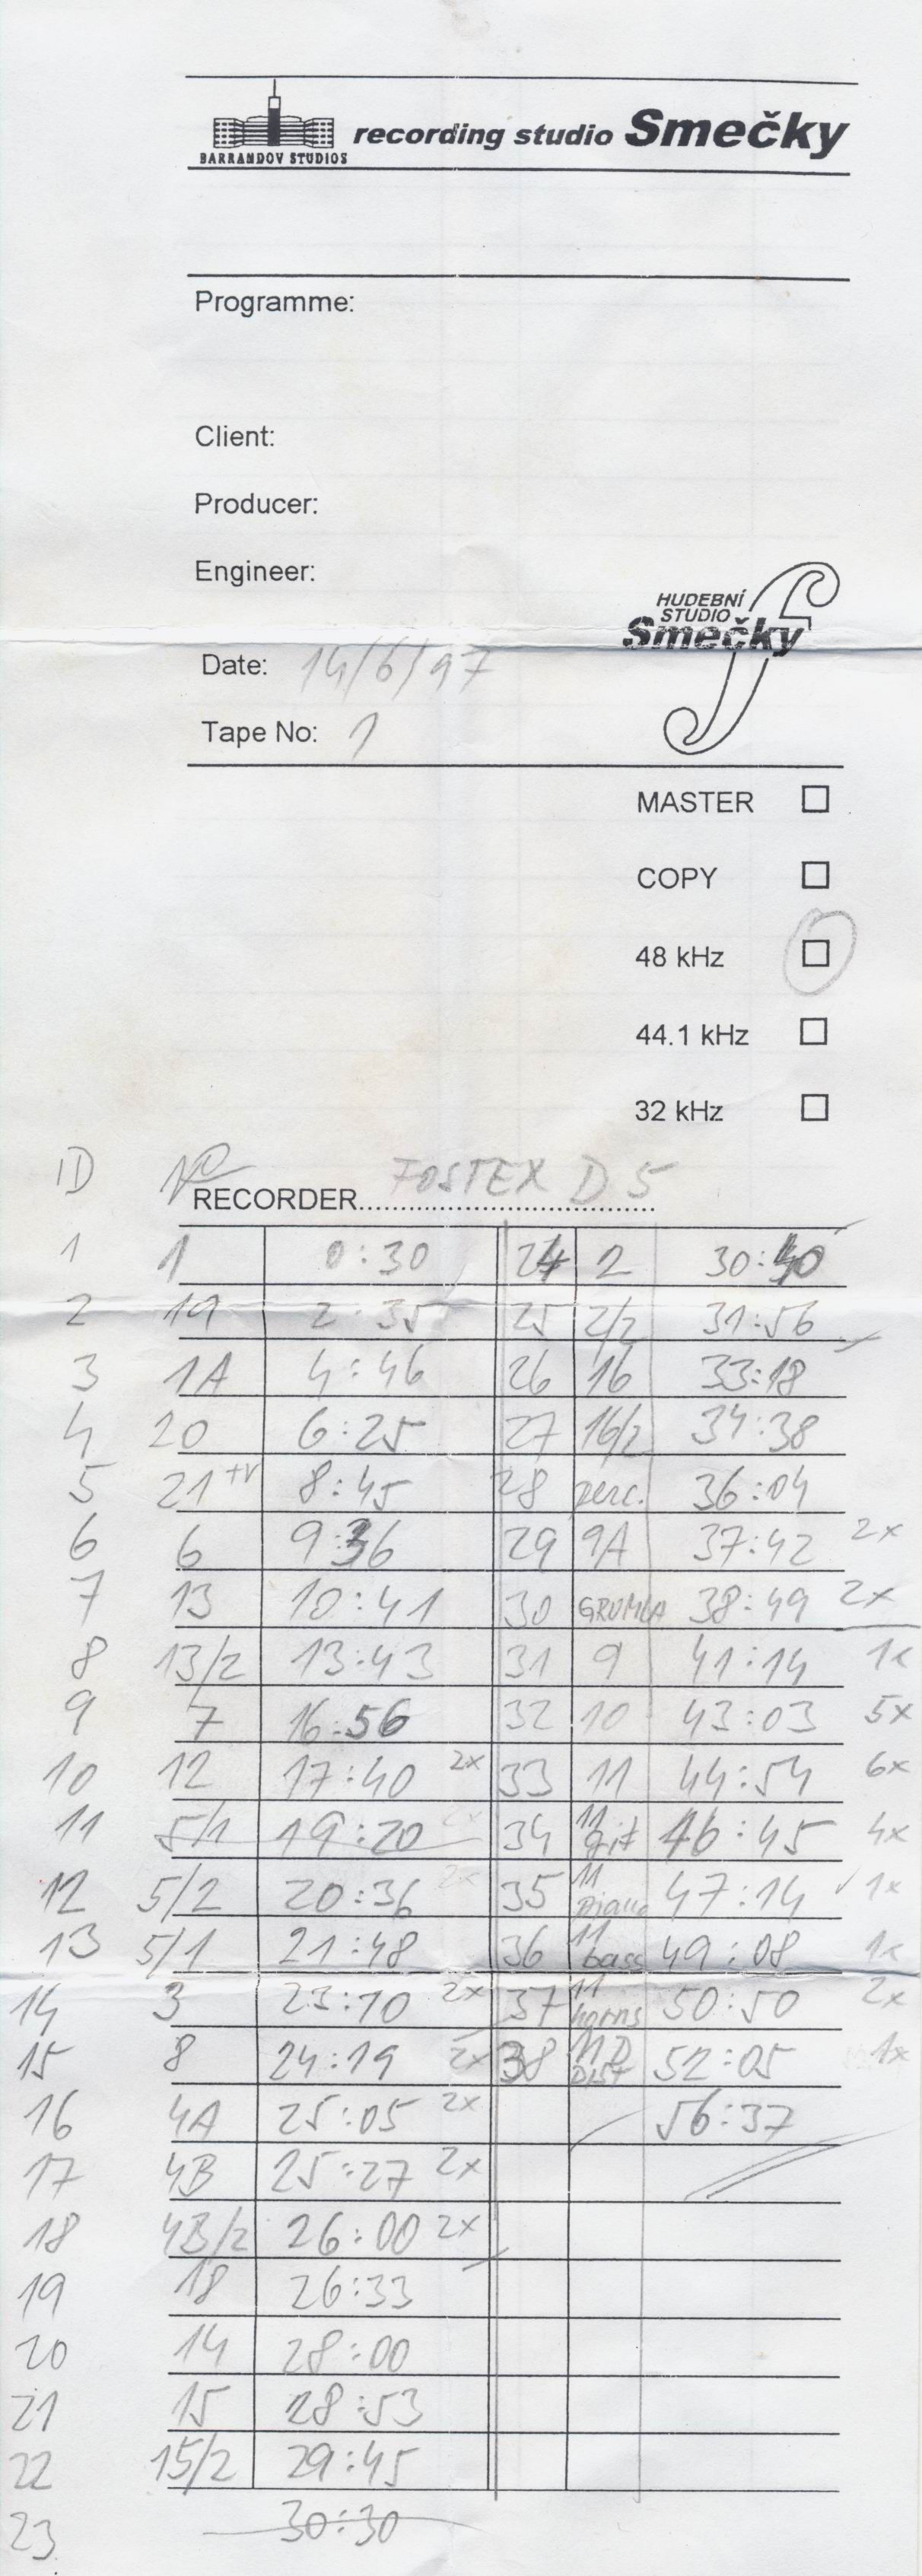 BARRANDOV STUDIOS recording studio Smečky
Programme:
Client:
Producer:
Engineer:
HUDEBNÍ
STUDIO
Smečky
Date: 14/6/97
Tape No: 1
MASTER
COPY
48 kHz
44.1 kHz
32 kHz
ID No
RECORDER.......... FOSTEX D 5
1 1 0:30 24 2 30:40
2 19 2:35 25 2/2 31:56
3 1A 4:46 26 16 33:18
4 20 6:25 27 16/2 34:38
5 21 8:45 28 perc. 36:04
6 6 9:36 29 9A 37:42 2x
7 13 10:41 30 GRUMLA 38:49 2x
8 13/2 13:43 31 9 41:14 1x
9 7 16:56 32 10 43:03 5x
10 12 17:40 2x 33 11 44:54 6x
11 5/1 19:20 2x 34 11 git 46:45 4x
12 5/2 20:36 2x 35 11 piano 47:14 1x
13 5/1 21:48 36 11 bass 49:08 1x
14 3 23:10 2x 37 11 horns 50:50 2x
15 8 24:19 2x 38 11 D DIST 52:05 1x
16 4A 25:05 2x 56:37
17 4B 25:27 2x
18 4B/2 26:00 2x
19 18 26:33
20 14 28:00
21 15 28:53
22 15/2 29:45
23 30:30